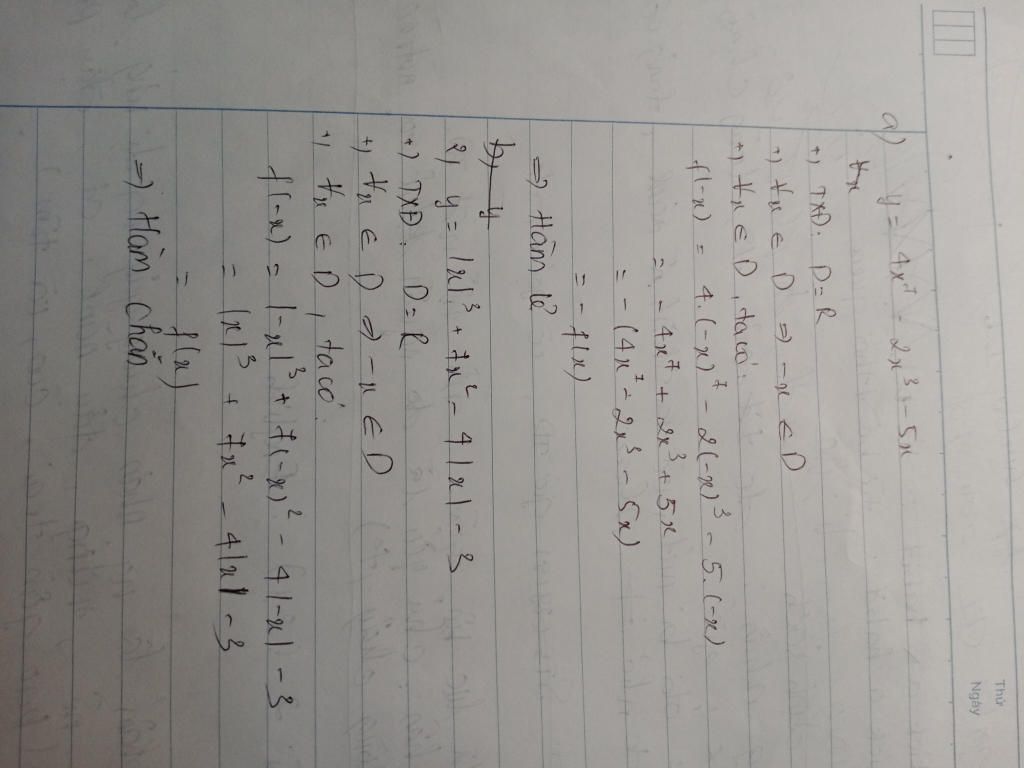 Thứ
Ngày
a) y = 4x⁷ - 2x³ - 5x
∀x
+) TXĐ: D = R
+) ∀x ∈ D => -x ∈ D
+) ∀x ∈ D, ta có:
f(-x) = 4.(-x)⁷ - 2(-x)³ - 5.(-x)
= - 4x⁷ + 2x³ + 5x
= - (4x⁷ - 2x³ - 5x)
= - f(x)
=> Hàm lẻ
b, y
2, y = |x|³ + 7x² - 4|x| - 3
+) TXĐ: D = R
+) ∀x ∈ D => -x ∈ D
+) ∀x ∈ D, ta có:
f(-x) = |-x|³ + 7(-x)² - 4|-x| - 3
= |x|³ + 7x² - 4|x| - 3
= f(x)
=> Hàm chẵn